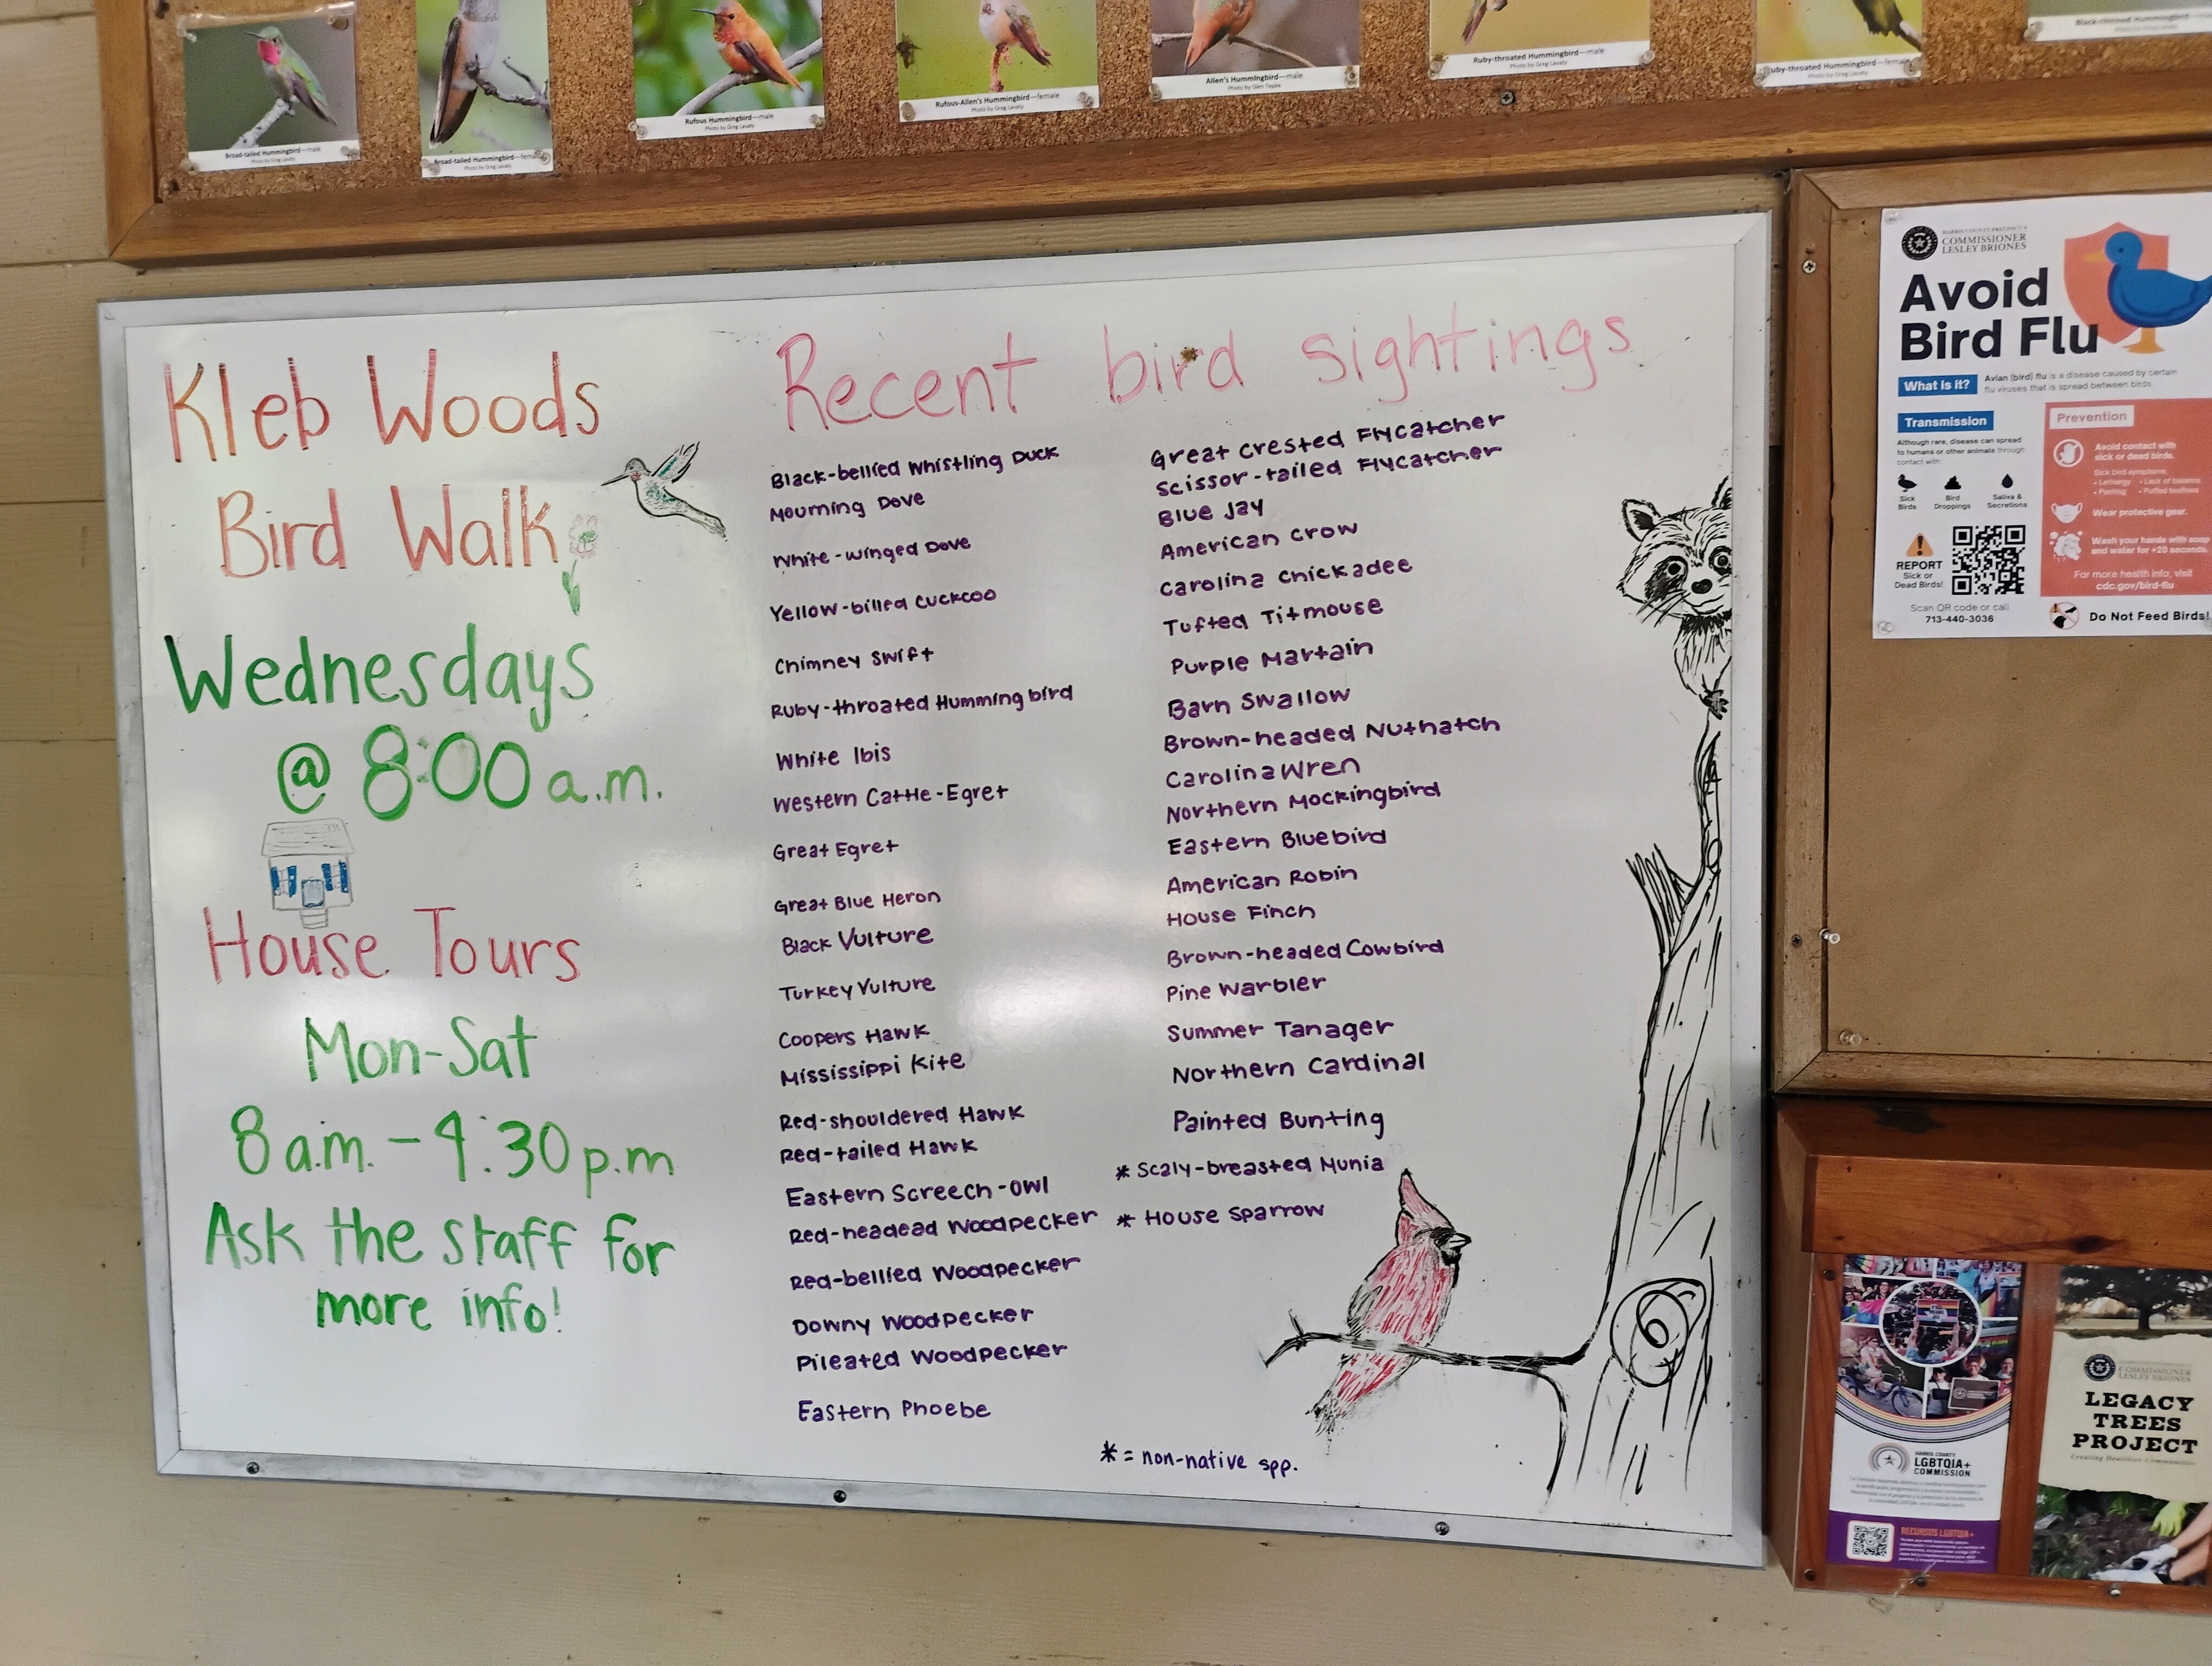 Broad-tailed Hummingbird—male
Photo by Greg Lavaty
Broad-tailed Hummingbird—fem
Photo by Greg Lavaty
Rufous Hummingbird—male
Photo by Greg Lavaty
Rufous-Allen's Hummingbird—female
Photo by Greg Lavaty
Allen's Hummingbird—male
Photo by Glen Tepke
Ruby-throated Hummingbird—male
Photo by Greg Lavaty
Ruby-throated Hummingbird—female
Photo by Greg Lavaty
Black-chinned Hummingbird
Kleb Woods
Bird Walk
Wednesdays
@ 8:00 a.m.
House Tours
Mon-Sat
8 a.m. - 4:30 p.m
Ask the staff for
more info!
Recent bird sightings
Black-bellied Whistling Duck
Mourning Dove
White-winged Dove
Yellow-billed Cuckcoo
Chimney Swift
Ruby-throated Humming bird
White Ibis
Western Cattle-Egret
Great Egret
Great Blue Heron
Black Vulture
Turkey Vulture
Coopers Hawk
Mississippi Kite
Red-shouldered Hawk
Red-tailed Hawk
Eastern Screech-Owl
Red-headead Woodpecker
Red-bellied Woodpecker
Downy Woodpecker
Pileated Woodpecker
Eastern Phoebe
Great Crested Flycatcher
Scissor-tailed Flycatcher
Blue Jay
American Crow
Carolina Chickadee
Tufted Titmouse
Purple Martain
Barn Swallow
Brown-headed Nuthatch
Carolina Wren
Northern Mockingbird
Eastern Bluebird
American Robin
House Finch
Brown-headed Cowbird
Pine Warbler
Summer Tanager
Northern Cardinal
Painted Bunting
* Scaly-breasted Munia
* House Sparrow
* = non-native spp.
HARRIS COUNTY PRECINCT 4
COMMISSIONER
LESLEY BRIONES
Avoid
Bird Flu
What is it?
Avian (bird) flu is a disease caused by certain
flu viruses that is spread between birds.
Transmission
Although rare, disease can spread
to humans or other animals through
contact with:
Sick
Birds
Bird
Droppings
Saliva &
Secretions
REPORT
Sick or
Dead Birds!
Scan QR code or call
713-440-3036
Prevention
Avoid contact with
sick or dead birds.
Sick bird symptoms:
• Lethargy • Loss of balance
• Panting • Puffed feathers
Wear protective gear.
Wash your hands with soap
and water for +20 seconds.
For more health info, visit
cdc.gov/bird-flu
Do Not Feed Birds!
HARRIS COUNTY
LGBTQIA+
COMMISSION
RECURSOS LGBTQIA+
COMMISSIONER
LESLEY BRIONES
LEGACY
TREES
PROJECT
Creating Healthier Communities